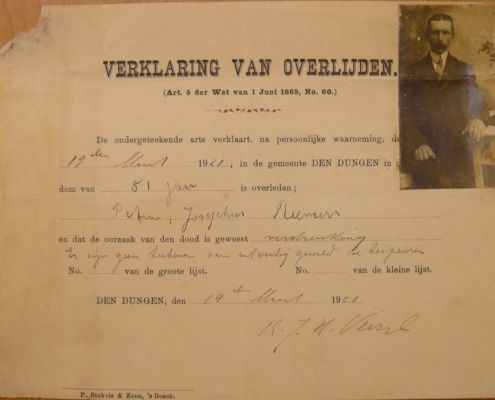 VERKLARING VAN OVERLIJDEN.
(Art. 5 der Wet van 1 Juni 1865, No. 60.)
De ondergeteekende arts verklaart, na persoonlijke waarneming, da
19den Maart 1921, in de gemeente DEN DUNGEN in d
dom van 51 jaar is overleden;
Josephus
en dat de oorzaak van den dood is geweest verdrinking
Er zijn geen teekenen van geweld te bespeuren
No. van de groote lijst. No. van de kleine lijst.
DEN DUNGEN, den 19den Maart 1921
K. J. H.
P. Stokvis & Zoon, 's Bosch.